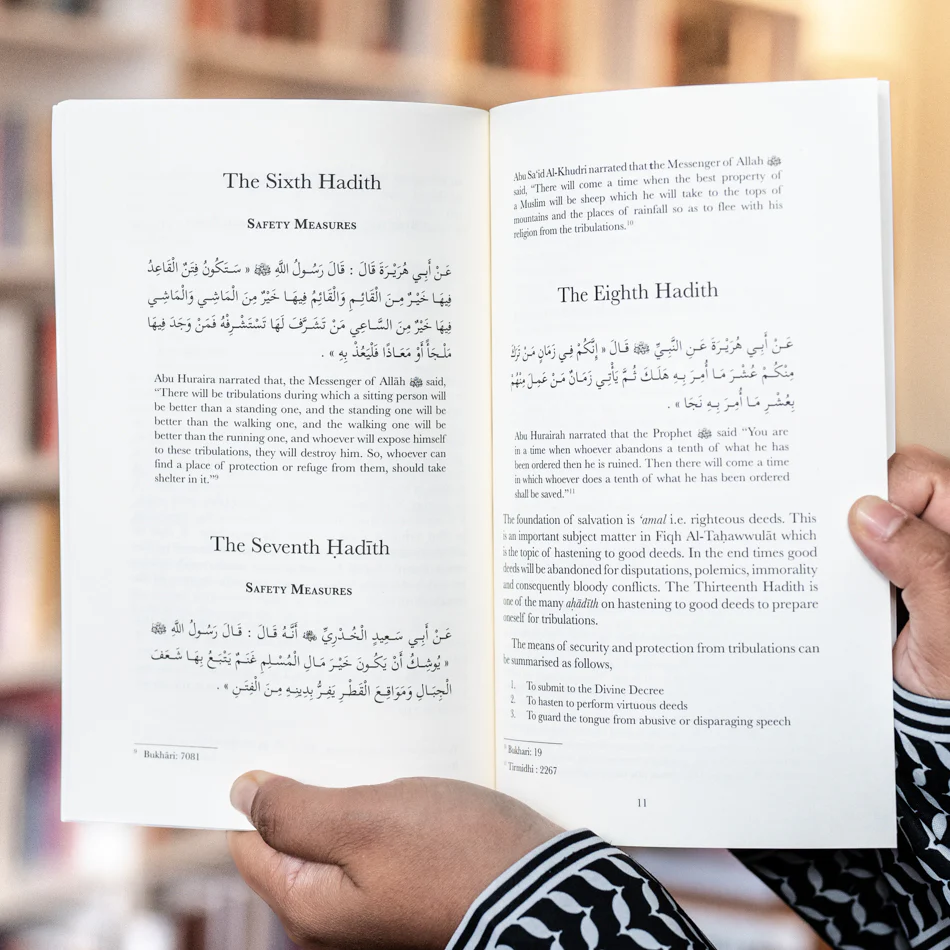 The Sixth Hadith
SAFETY MEASURES
عَنْ أَبِي هُرَيْرَةَ قَالَ : قَالَ رَسُولُ اللَّهِ ﷺ « سَتَكُونُ فِتَنٌ الْقَاعِدُ
فِيهَا خَيْرٌ مِنَ الْقَائِمِ وَالْقَائِمُ فِيهَا خَيْرٌ مِنَ الْمَاشِي وَالْمَاشِي
فِيهَا خَيْرٌ مِنَ السَّاعِي مَنْ تَشَرَّفَ لَهَا تَسْتَشْرِفْهُ فَمَنْ وَجَدَ فِيهَا
مَلْجَأً أَوْ مَعَاذًا فَلْيَعُذْ بِهِ » .
Abu Huraira narrated that, the Messenger of Allāh ﷺ said,
“There will be tribulations during which a sitting person will
be better than a standing one, and the standing one will be
better than the walking one, and the walking one will be
better than the running one, and whoever will expose himself
to these tribulations, they will destroy him. So, whoever can
find a place of protection or refuge from them, should take
shelter in it.”⁹
The Seventh Ḥadīth
SAFETY MEASURES
عَنْ أَبِي سَعِيدٍ الْخُدْرِيِّ أَنَّهُ قَالَ : قَالَ رَسُولُ اللَّهِ ﷺ
« يُوشِكُ أَنْ يَكُونَ خَيْرَ مَالِ الْمُسْلِمِ غَنَمٌ يَتْبَعُ بِهَا شَعَفَ
الْجِبَالِ وَمَوَاقِعَ الْقَطْرِ يَفِرُّ بِدِينِهِ مِنَ الْفِتَنِ » .
⁹ Bukhāri: 7081
Abu Sa‘id Al-Khudri narrated that the Messenger of Allah ﷺ
said, “There will come a time when the best property of
a Muslim will be sheep which he will take to the tops of
mountains and the places of rainfall so as to flee with his
religion from the tribulations.¹⁰
The Eighth Hadith
عَنْ أَبِي هُرَيْرَةَ عَنِ النَّبِيِّ ﷺ قَالَ « إِنَّكُمْ فِي زَمَانٍ مَنْ تَرَكَ
مِنْكُمْ عُشْرَ مَا أُمِرَ بِهِ هَلَكَ ثُمَّ يَأْتِي زَمَانٌ مَنْ عَمِلَ مِنْهُمْ
بِعُشْرِ مَا أُمِرَ بِهِ نَجَا » .
Abu Hurairah narrated that the Prophet ﷺ said “You are
in a time when whoever abandons a tenth of what he has
been ordered then he is ruined. Then there will come a time
in which whoever does a tenth of what he has been ordered
shall be saved.”¹¹
The foundation of salvation is ‘amal i.e. righteous deeds. This
is an important subject matter in Fiqh Al-Taḥawwulāt which
is the topic of hastening to good deeds. In the end times good
deeds will be abandoned for disputations, polemics, immorality
and consequently bloody conflicts. The Thirteenth Hadith is
one of the many aḥādīth on hastening to good deeds to prepare
oneself for tribulations.
The means of security and protection from tribulations can
be summarised as follows,
1. To submit to the Divine Decree
2. To hasten to perform virtuous deeds
3. To guard the tongue from abusive or disparaging speech
Bukhari: 19
Tirmidhi : 2267
11